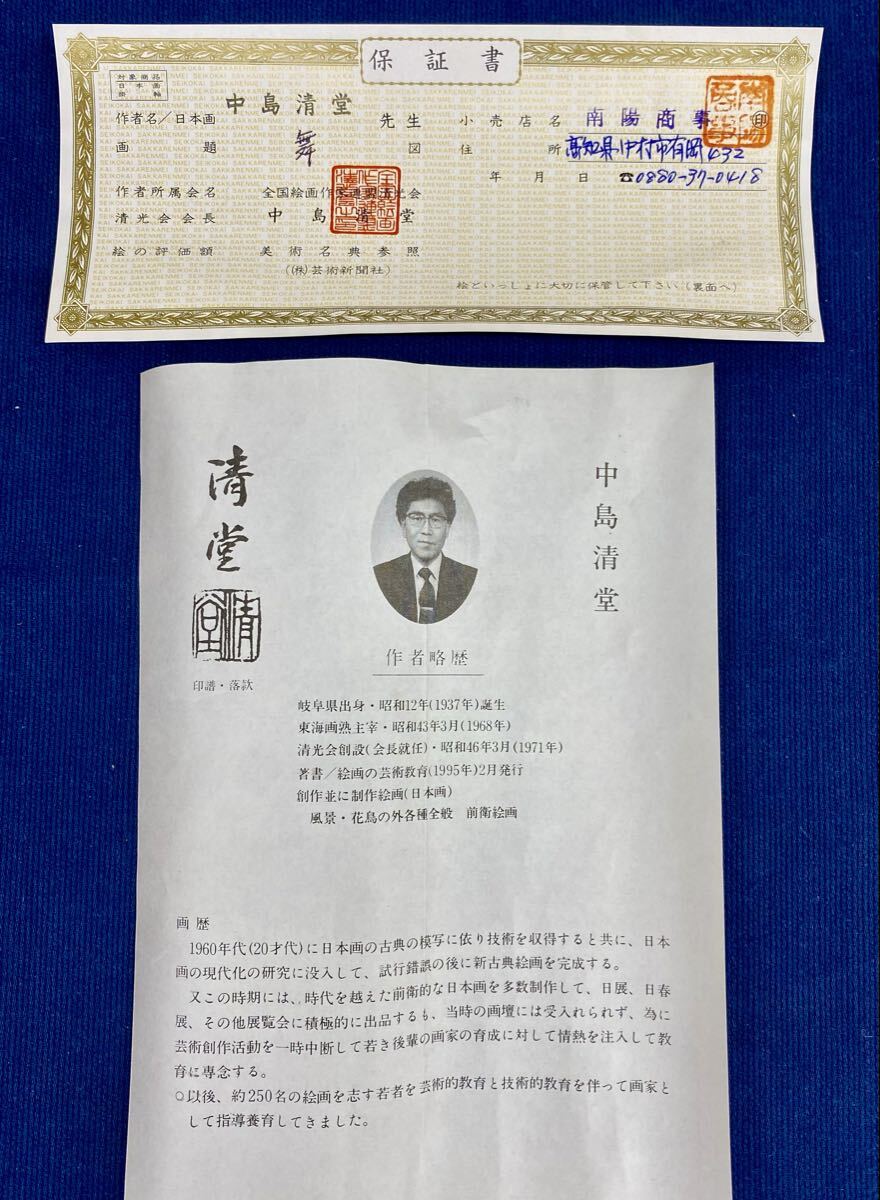 保証書
対象商品
日本画
掛軸
作者名/日本画 中島清堂 先生
画題 舞 図
作者所属会名 全国絵画作家連盟清光会
清光会会長 中島清堂
絵の評価額 美術名典参照
((株)芸術新聞社)
小売店名 南陽商事 ㊞
住所 高知県中村市有岡432
年 月 日 ☎0880-37-0418
絵といっしょに大切に保管して下さい(裏面へ)
中島清堂
清堂
清堂
印譜・落款
作者略歴
岐阜県出身・昭和12年(1937年)誕生
東海画熟主宰・昭和43年3月(1968年)
清光会創設(会長就任)・昭和46年3月(1971年)
著書/絵画の芸術教育(1995年)2月発行
創作並に制作絵画(日本画)
風景・花鳥の外各種全般 前衛絵画
画歴
1960年代(20才代)に日本画の古典の模写に依り技術を収得すると共に、日本
画の現代化の研究に没入して、試行錯誤の後に新古典絵画を完成する。
又この時期には、時代を越えた前衛的な日本画を多数制作して、日展、日春
展、その他展覧会に積極的に出品するも、当時の画壇には受入れられず、為に
芸術創作活動を一時中断して若き後輩の画家の育成に対して情熱を注入して教
育に専念する。
○以後、約250名の絵画を志す若者を芸術的教育と技術的教育を伴って画家と
して指導養育してきました。